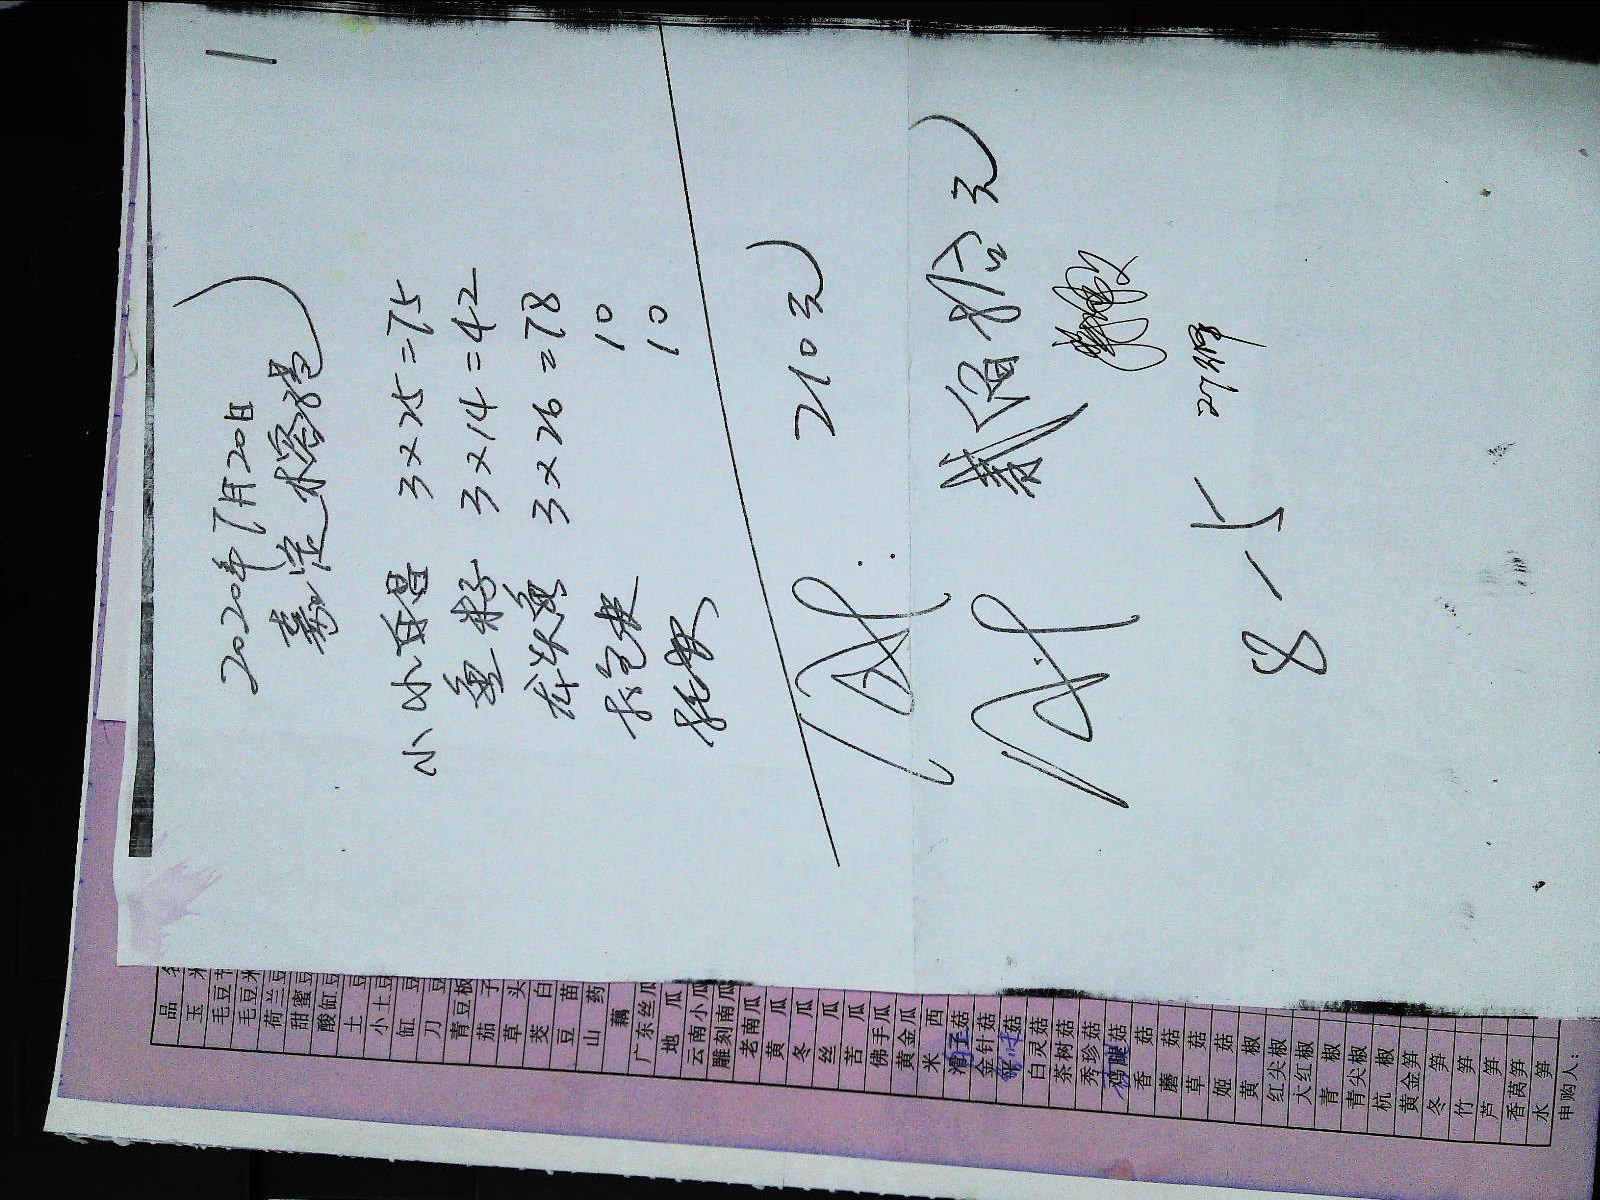 2020年7月20日
嘉定
小 3×25=75
鱼籽 3×14=42
龙头鱼 3×26=78
打包费 10
托费 10
210元
贰佰拾元
8-5
品名
玉米
毛豆节
毛豆米
荷兰豆
甜蜜豆
酸缸豆
土豆
小土豆
缸豆
刀豆
青豆板
茄子
草头
茭白
豆苗
山药
藕
广东丝瓜
地瓜
云南小瓜
雕刻南瓜
老南瓜
黄瓜
冬瓜
丝瓜
苦瓜
佛手瓜
黄金瓜
米西
滑子菇
金针菇
白灵菇
茶树菇
秀珍菇
鸡腿菇
香菇
蘑菇
草菇
姬菇
黄椒
红尖椒
大红椒
青椒
青尖椒
杭椒
黄金笋
冬笋
竹笋
芦笋
香莴笋
水笋
申购人：